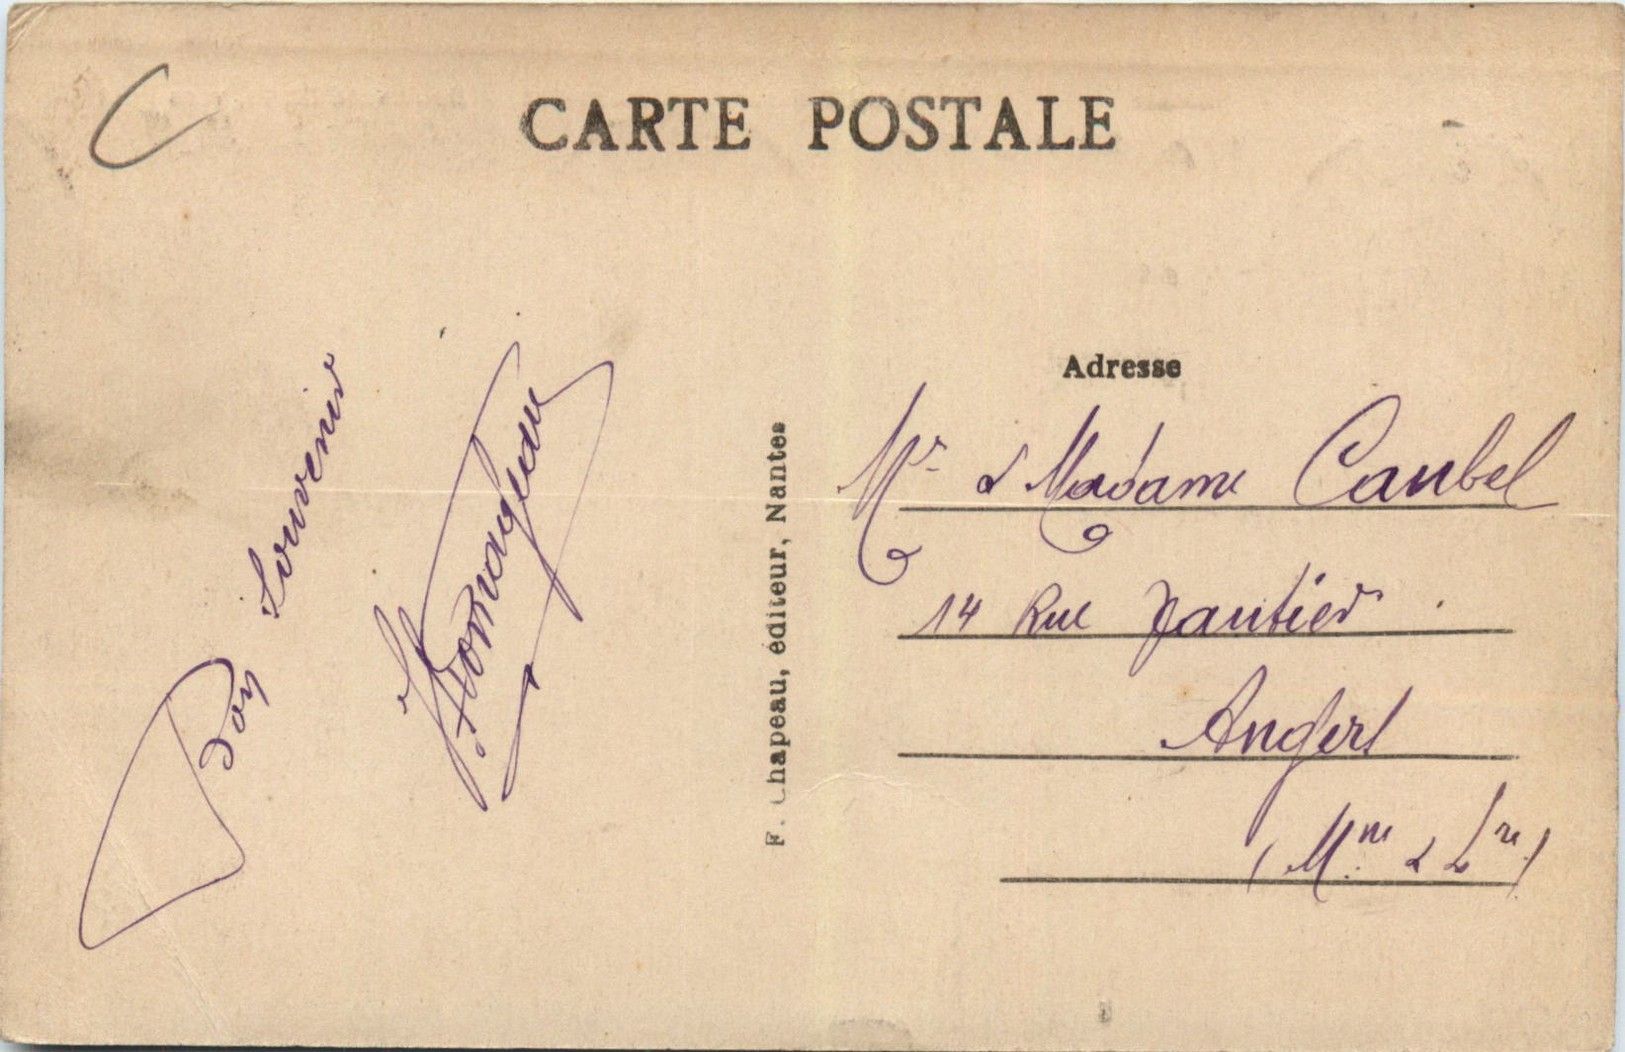 C
CARTE POSTALE
Bon Souvenir
F. Chapeau, éditeur, Nantes
Adresse
Mr & Madame Caubel
14 Rue
Angers
(Mne & Lre)